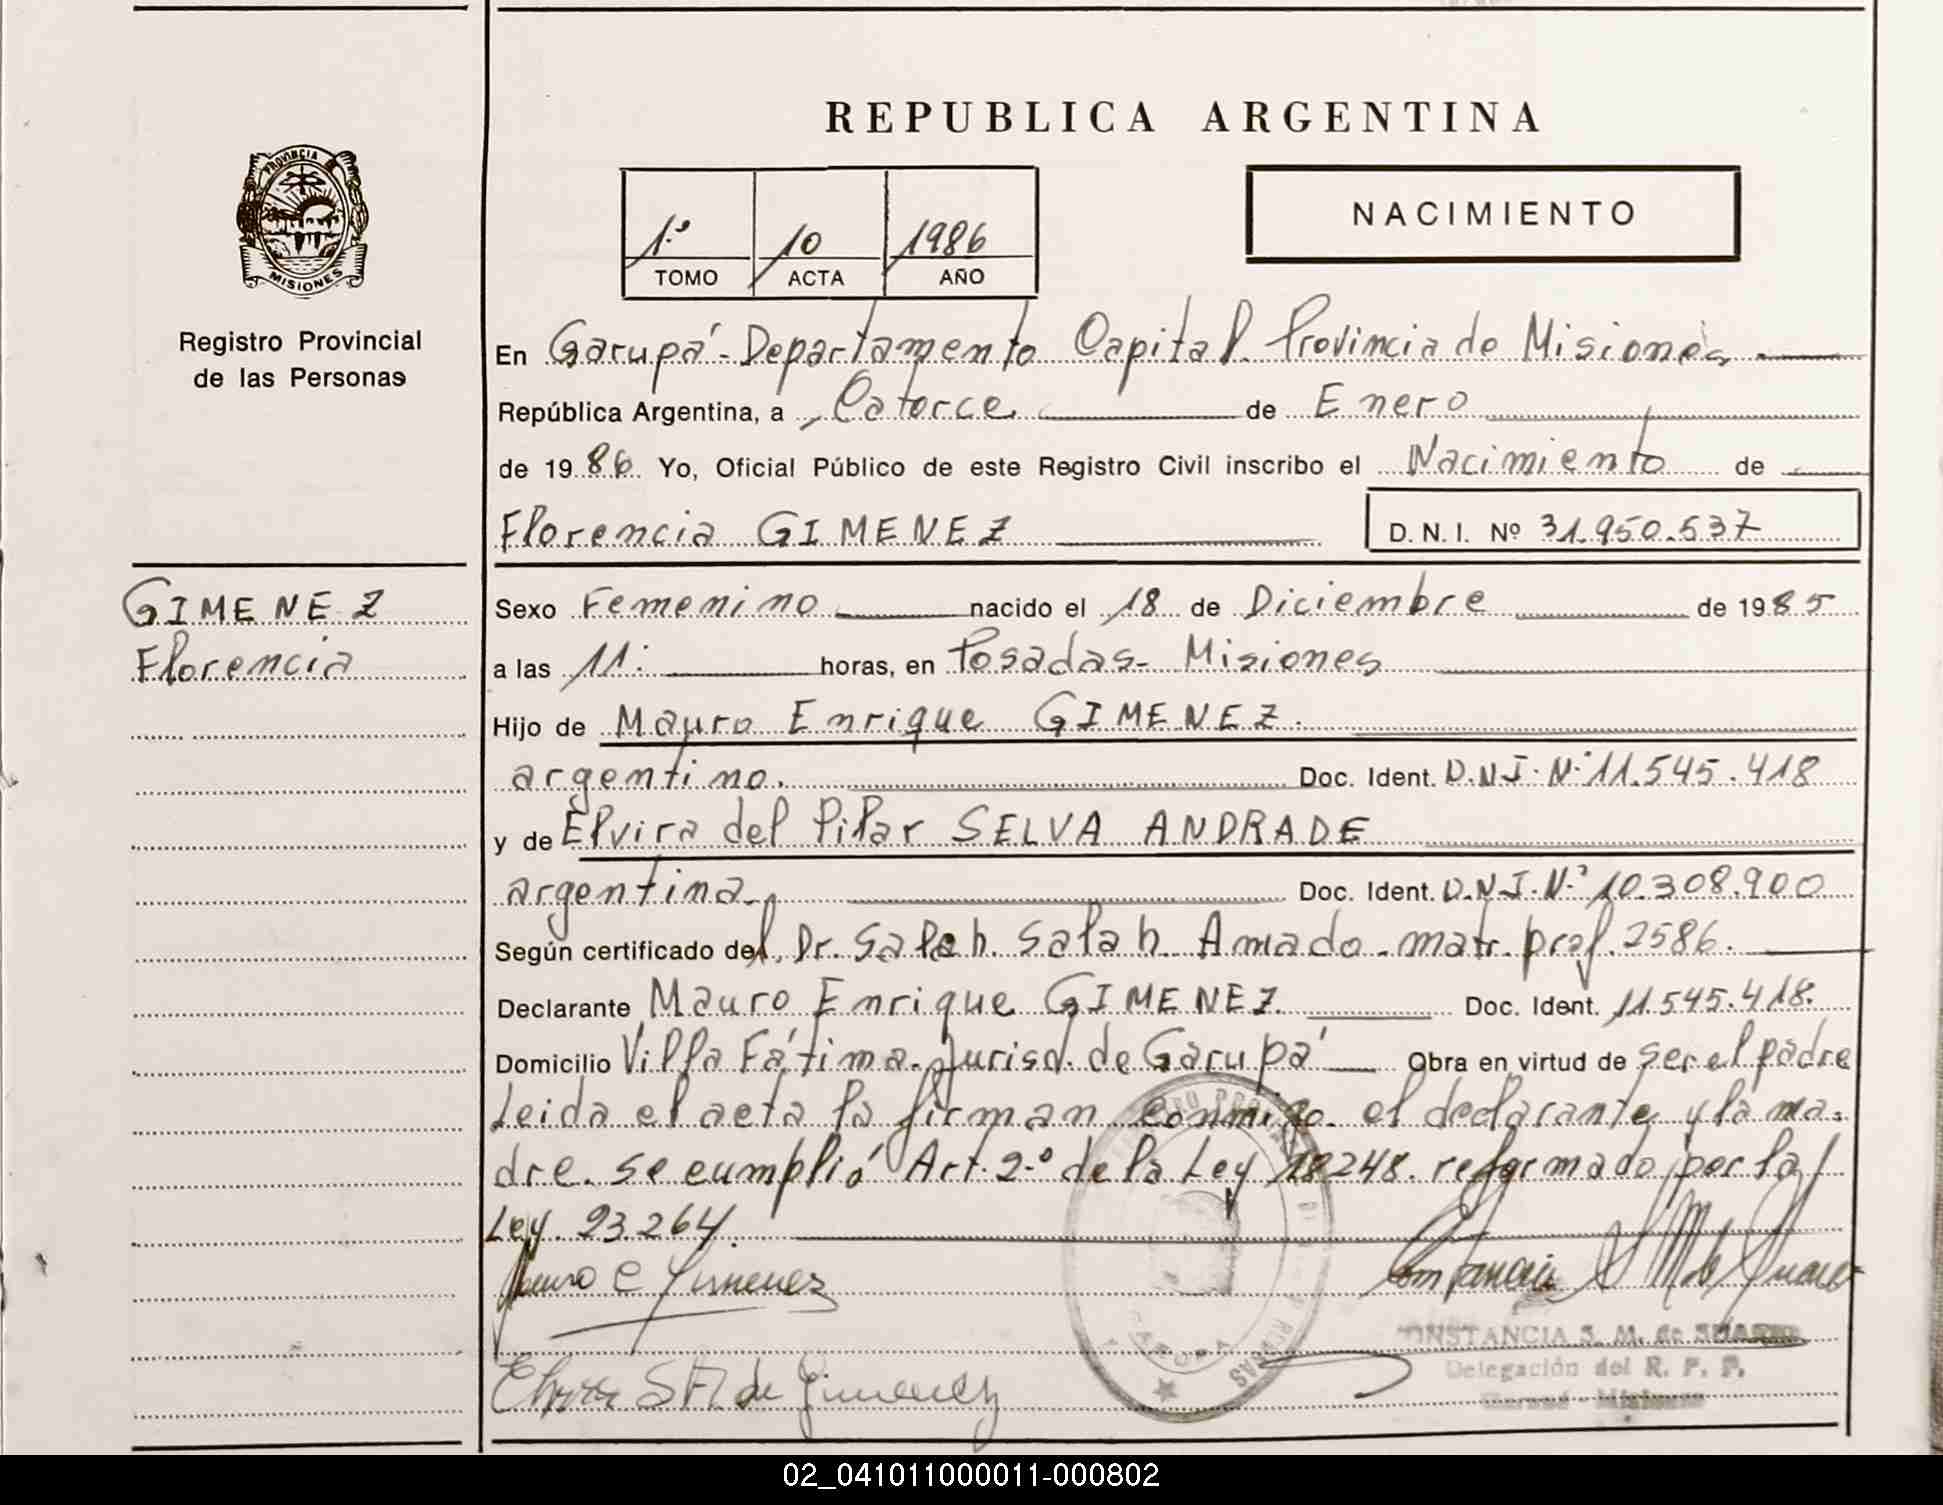 REPUBLICA ARGENTINA
PROVINCIA DE
MISIONES
Registro Provincial
de las Personas
1º 10 1986
TOMO ACTA AÑO
NACIMIENTO
En Garupá - Departamento Capital. Provincia de Misiones.
República Argentina, a Catorce de Enero
de 1986 Yo, Oficial Público de este Registro Civil inscribo el Nacimiento de
Florencia GIMENEZ
D.N.I. Nº 31.950.537
GIMENEZ
Florencia
Sexo Femenino nacido el 18 de Diciembre de 1985
a las 11: horas, en Posadas - Misiones
Hijo de Mauro Enrique GIMENEZ.
argentino. Doc. Ident. D.N.I. Nº 11.545.418
y de Elvira del Pilar SELVA ANDRADE
argentina. Doc. Ident. D.N.I. Nº 10.308.900
Según certificado del Dr. Saleh Salah Amado. matr. prof. 2586.
Declarante Mauro Enrique GIMENEZ. Doc. Ident. 11.545.418.
Domicilio Villa Fátima. Jurisd. de Garupá Obra en virtud de ser el padre
Leida el acta la firman conmigo el declarante y la ma-
dre. se cumplió Art. 2º de la Ley 18248. reformado por la
Ley. 23.264.
Mauro E Gimenez
Elvira de Gimenez
CONSTANCIA S. M. de SUAREZ
Delegación del R. P. P.
Garupá - Misiones
GARUPA
02_041011000011-000802